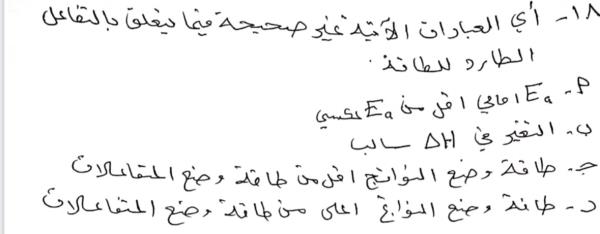 ١٨- أي العبارات الآتية غير صحيحة فيما يتعلق بالتفاعل
الطارد للطاقة.
أ- Ea امامي اقل من Ea عكسي
ب- التغير في ΔH سالب
جـ- طاقة وضع النواتج اقل من طاقة وضع المتفاعلات
د- طاقة وضع النواتج اعلى من طاقة وضع المتفاعلات